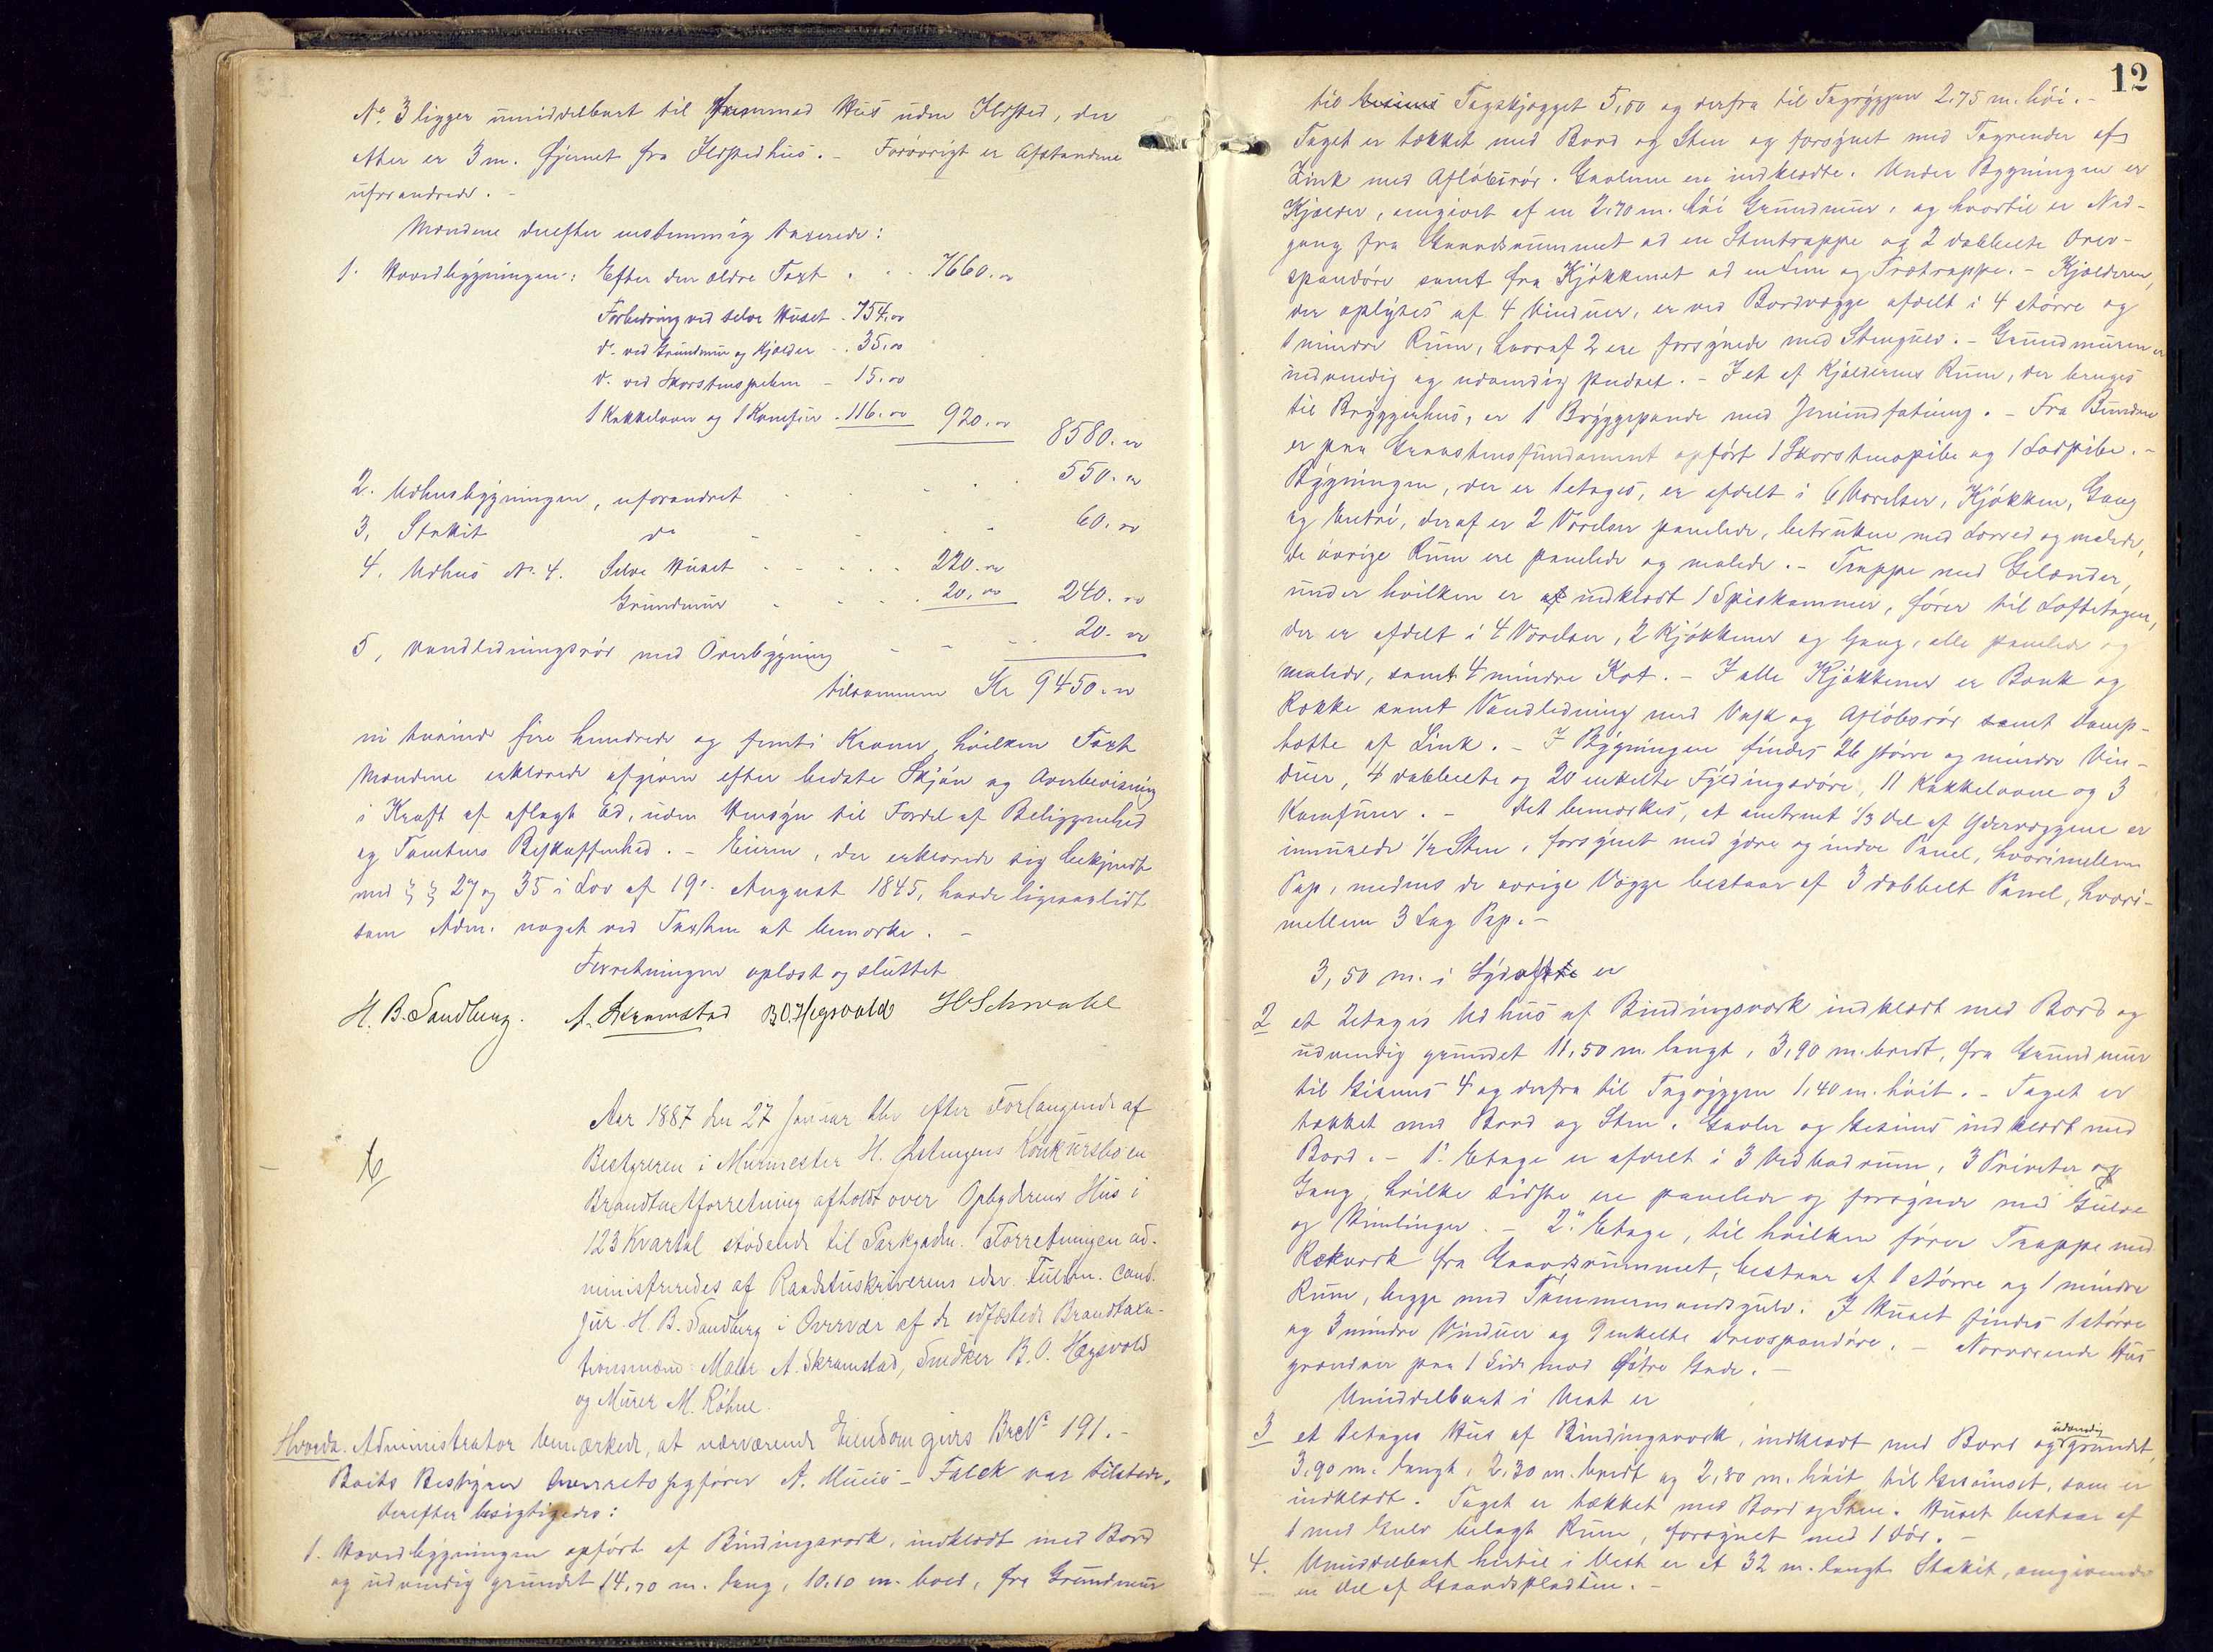 No. 3 ligger umiddelbart til fremmed Hus uden Ildsted, der
atter er 3 m. fjernet fra Ildstedhus. - Forøvrigt er Afstandene
uforandrede. -
Mændene derefter enstemmig taxerede:
1. Hovedbygningen: Efter den ældre Taxt . . . 7660.00
Forbedring ved selve Huset - 754.00
do. ved Grundmur og Kjælder - . 35.00
do. ved Skorstenspiben - 15.00
1 Kakkelovn og 1 Komfur - 116.00 920.00 8580.00
2. Udhusbygningen, uforandret - - - 550.00
3, Stakit do - - - 60.00
4. Udhus No. 4. Selve Huset - - - . . 220.00
Grundmur - - - . 20.00 240.00
5, Vandledningsrør med Overbygning - - - . 20.00
tilsammen Kr 9450.00
ni tusinde fire hundrede og femti Kroner, hvilken Taxt
Mændene erklærede afgiven efter bedste Skjøn og Overbevisning
i Kraft af aflagt Ed, uden Hensyn til Fordel af Beliggenhed
og Tomtens Beskaffenhed. - Eieren, der erklærede sig bekjendt
med § § 27 og 35 i Lov af 19. August 1845, havde ligesaalidt
som Adm. noget ved Taxten at bemærke. -
Forretningen oplæst og sluttet
H. B. Sandberg. A. Skramstad B.O. Hegsvold H Schwabe
Aar 1887 den 27 Januar blev efter Forlangende af
Bestyreren i Murmester H. Konkursbo en
Brandtaxtforretning afholdt over Opbyderens Hus i
123 Kvartal stødende til Parkgaden. Forretningen ad-
ministreredes af Raadstuskriverens edsv. Fuldm. cand.
jur. H. B. Sandberg i Overvær af de edfæstede Brandtaxa-
tionsmænd: Maler A. Skramstad, Snedker B. O. Hegsvold
og Murer M. Røhne.
Hvorda. Administrator bemærkede, at nærværende Eiendom givs Br No 191. -
Boets Bestyrer Overretssagfører A. - Falck var tilstede.
Derefter besigtigedes:
1. Hovedbygningen opført af Bindingsværk, indklædt med Bord
og udvendig grundet 14,70 m. lang, 10,10 m. bred, fra Grundmur
12
til Gesims Tagskjægget 5,00 og derfra til Tagryggen 2,75 m. høi. -
Taget er tækket med Bord og Sten og forsynet med Tagrender af
Zink med Afløbsrør. Gavlene ere indklædte. Under Bygningen er
Kjælder, omgivet af en 2,70 m. høi Grundmur, og hvortil er Ned-
gang fra Gaardsrummet ad en Stentrappe og 2 dobbelte Drev-
spandøre samt fra Kjøkkenet ad en Lem og Trætrappe. - Kjælderen,
der oplyses af 4 Vinduer, er ved Bordvægge afdelt i 4 større og
1 mindre Rum, hvoraf 2 ere forsynede med Stengulv. - Grundmuren er
indvendig og udvendig pudset. - I et af Kjælderens Rum, der bruges
til Bryggerhus, er 1 Bryggepande med Jernindfatning. - Fra Bunden
er paa Graastensfundament opført 1 Skorstenspibe og 1 Lodpibe. -
Bygningen, der er 1etages, er afdelt i 6 Værelser, Kjøkken, Gang
og Entré, deraf er 2 Værelser panelede, betrukne med Lærred og malede,
de øvrige Rum ere panelede og malede. - Trappe med Gelænder,
under hvilken er indklædt 1 Spiskammer, fører til Loftetagen,
der er afdelt i 4 Værelser, 2 Kjøkkener og Gang, alle panelede og
malede, samt 4 mindre Kot. - I alle Kjøkkener er Bænk og
Række samt Vandledning med Vask og Afløbsrør samt Damp-
hætte af Zink. - I Bygningen findes 26 større og mindre Vin-
duer, 4 dobbelte og 20 enkelte Fyldingsdøre, 11 Kakkelovne og 3
Komfurer. - Det bemærkes, at omtrent 1/3 Del af Ydervæggene er
inmurede 1/2 Sten, forsynet med ydre og indre Panel, hvorimellem
Pap, medens de øvrige Vægge bestaar af 3 dobbelt Panel, hvori-
mellem 3 Lag Pap. -
3,50 m. i er
2 et 2etages Udhus af Bindingsværk indklædt med Bord og
udvendig grundet 11,50 m. langt, 3,90 m. bredt, fra Grundmur
til Gesims 4 og derfra til Tagryggen 1,40 m. høit. - Taget er
tækket med Bord og Sten. Gavler og Gesims indklædt med
Bord. - 1. Etage er afdelt i 3 Vedbodrum, 3 Priveter og
Gang, hvilke sidste ere panelede og forsynede med Gulve
og Himlinger. - 2. Etage, til hvilken fører Trappe med
Rækværk fra Gaardsrummet, bestaar af 1 større og 1 mindre
Rum, begge med Tømmermandsgulv. I Huset findes 1 større
og 3 mindre Vinduer og 9 enkelte Drevspandøre. - Nærværende Hus
grændser paa 1 Side mod Østre Gade. -
Umiddelbart i Vest er
3 et 1etages Hus af Bindingsværk, indklædt med Bord og udvendig grundet,
3,90 m. langt, 2,30 m. bredt og 2,80 m. høit til Gesimset, som er
indklædt. Taget er tækket med Bord og Sten. Huset bestaar af
1 med Gulv belagt Rum, forsynet med 1 Dør. -
4. Umiddelbart hertil i Vest er et 32 m. langt Stakit, omgivende
en Del af Gaardspladsen. -